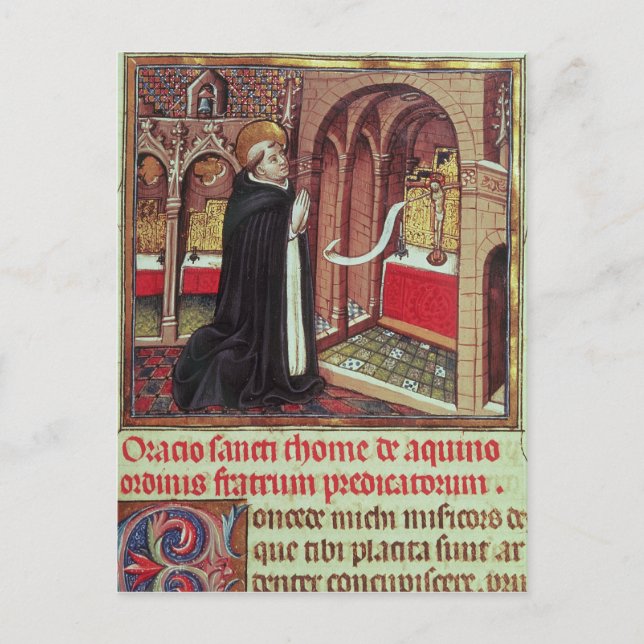 Oracio sancti thome de aquino
ordinis fratrum predicatorum.
Concede michi misicors de
que tibi placita sunt ar
denter concupiscere, pru